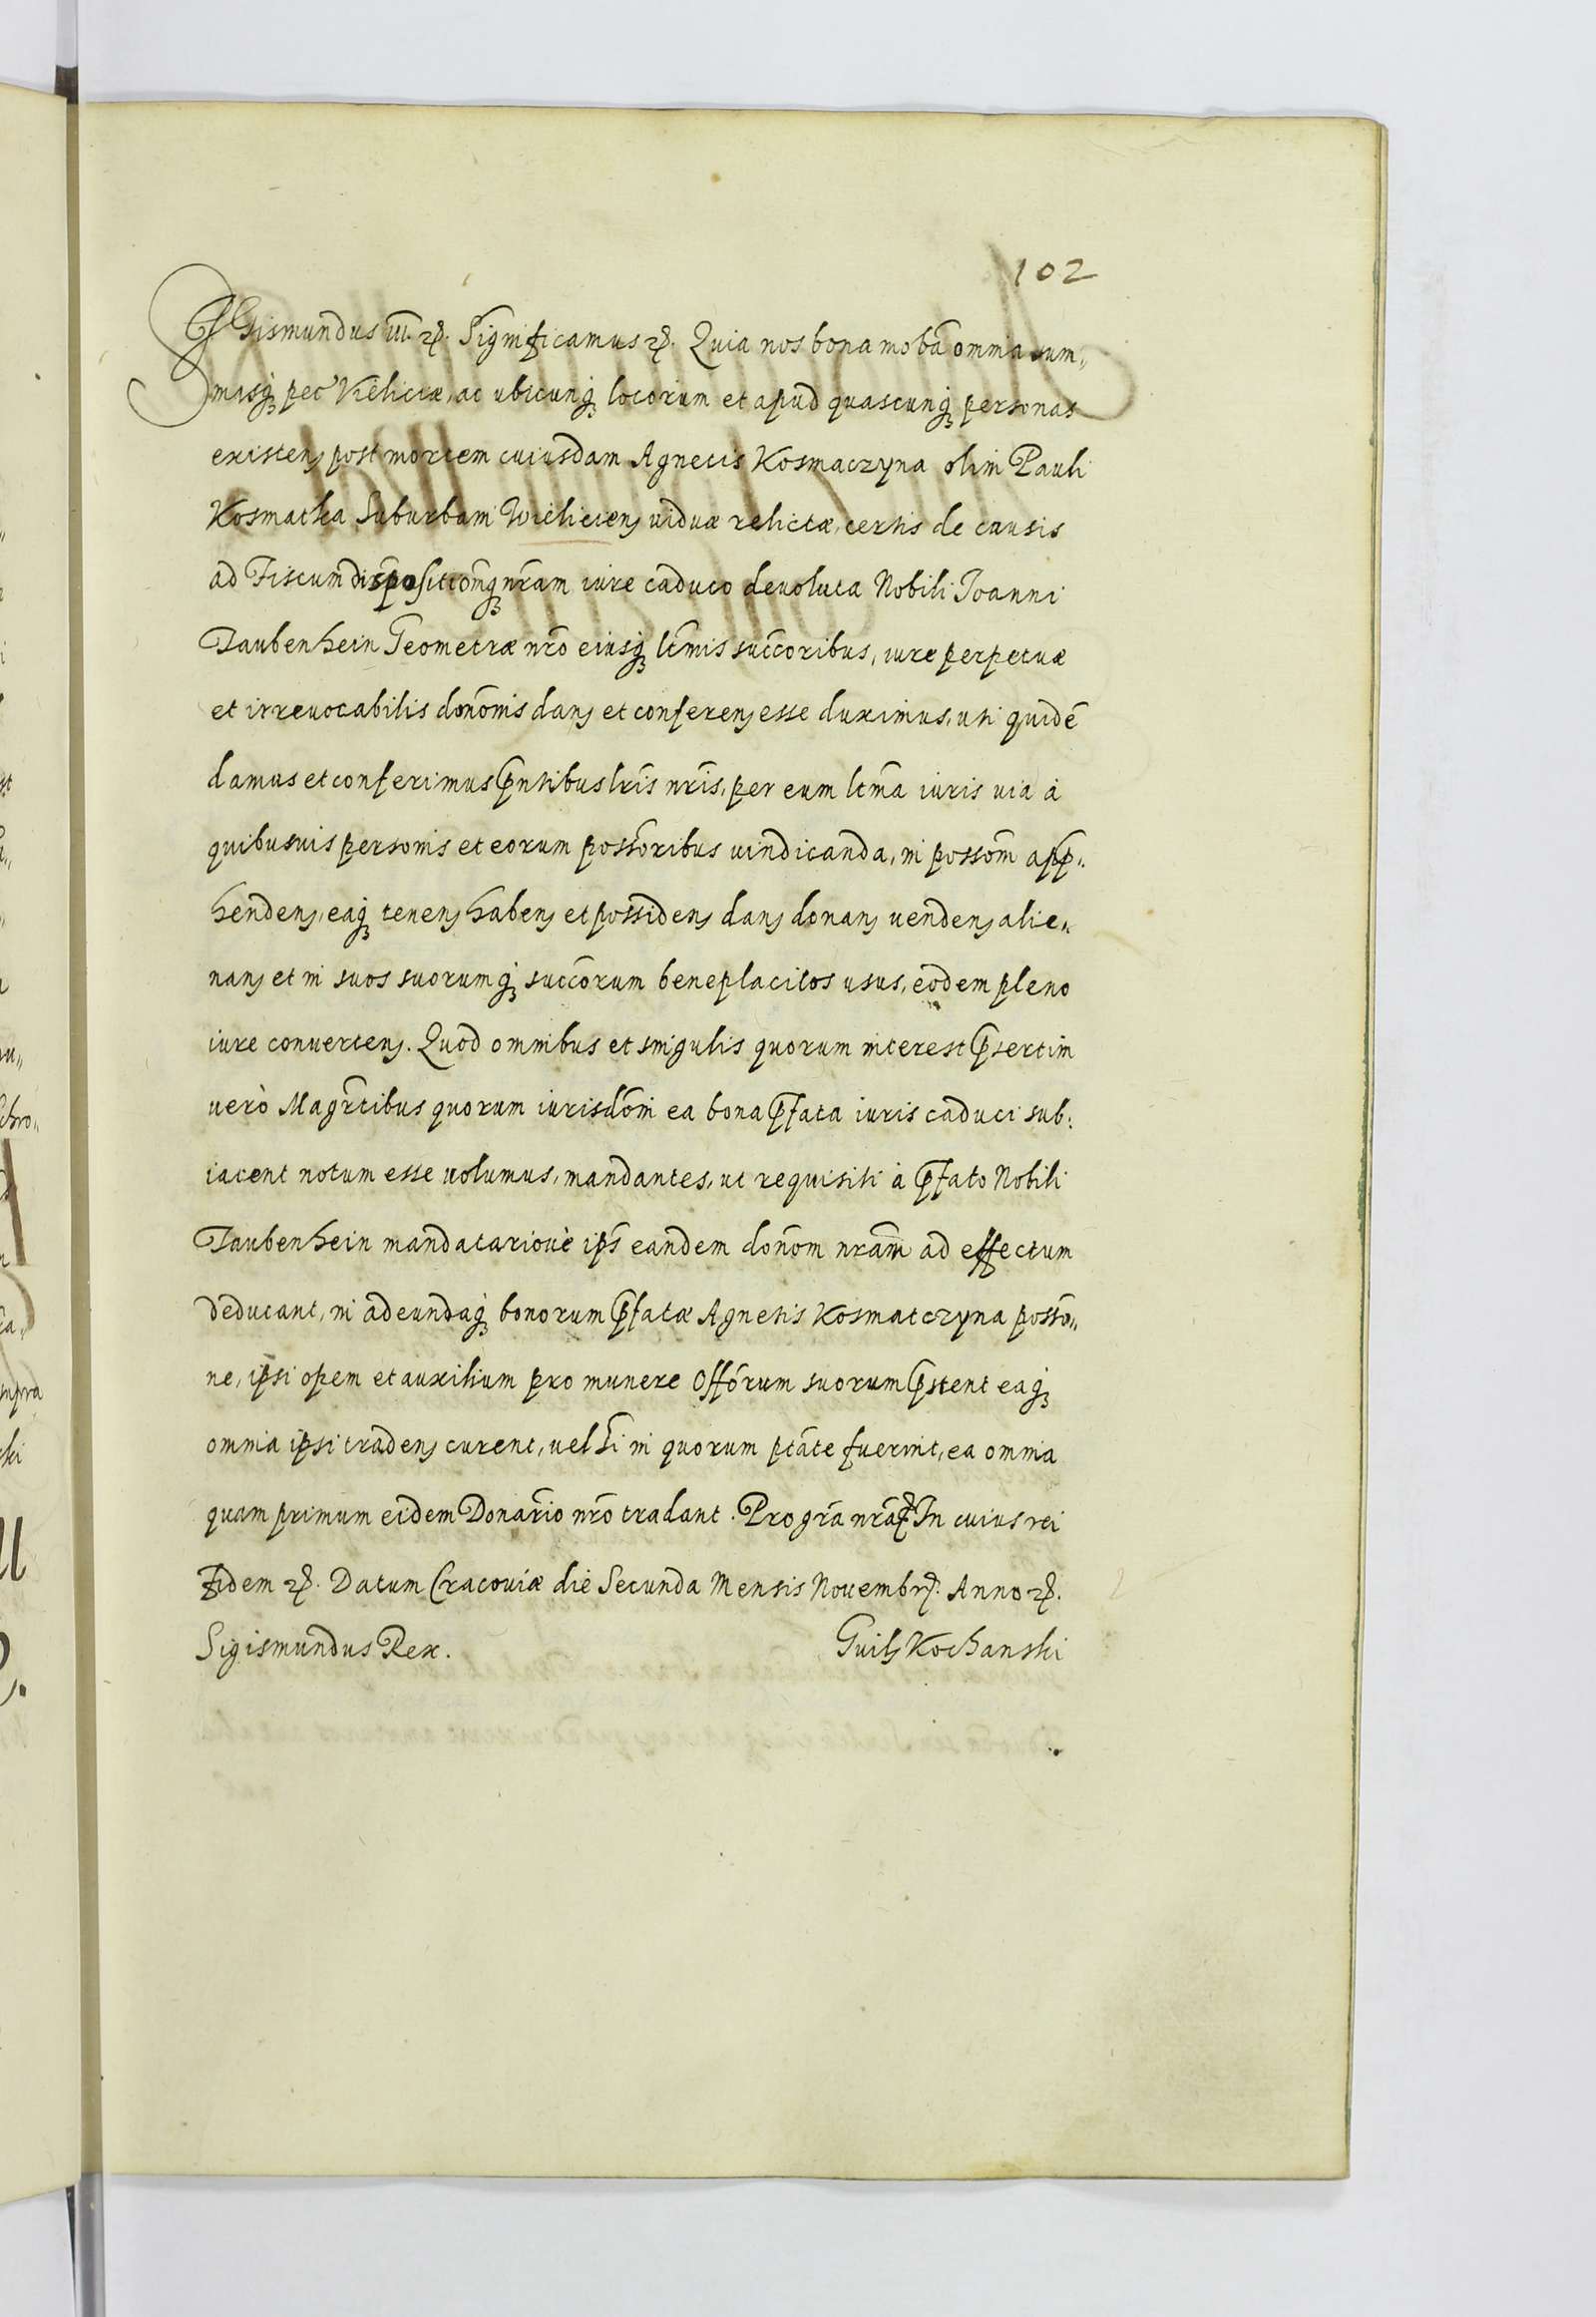 102
SIGismundus III. ꝛc. Significamus ꝛc. Quia nos bona mobã omnia sum„
masq́ȝ pec Vieliciæ, ac ubicunq́ȝ locorum et apud quascunq́ȝ personas
existenȝ post mortem cuiusdam Agnetis Kosmaczyna olim Pauli
Kosmatka Suburbani Wielicienȝ viduæ relictæ, certis de causis
ad Fiscum dispositiom̃qȝ nr̃am iure caduco devoluta Nobili Joanni
Taubenhein Geometræ nr̃o eiusq́ȝ ltm̃is succ̃oribus, iure perpetuæ
et irrevocabilis donõnis danȝ et conferenȝ esse duximus, uti quidẽ
damus et conferimus p̃ntibus lr̃is nr̃is, per eum ltm̃a iuris via à
quibusvis personis et eorum poss̃oribus vindicanda, in possõm app„
hendenȝ, eaq́ȝ tenenȝ habenȝ et possidenȝ danȝ donanȝ vendenȝ alie„
nanȝ et in suos suorumq́ȝ succ̃orum beneplacitos usus, eodem pleno
iure convertenȝ. Quod omnibus et singulis quorum interest p̃sertim
verò Magr̃tibus quorum iurisdõni ea bona p̃fata iuris caduci sub:
iacent notum esse volumus, mandantes, ut requisiti à p̃fato Nobili
Taubenhein mandatariovè ips̃ eandem donõm nrãm ad effectum
deducant, in adeundaq́ȝ bonorum p̃fatæ Agnetis Kosmatczyna possõ„
ne, ipsi opem et auxilium pro munere Offõrum suorum p̃stent eaq́ȝ
omnia ipsi tradenȝ curent, vel si in quorum ptãte fuerint, ea omnia
quam primum eidem Donar̃io nr̃o tradant. Pro grã nrã ꝛc. In cuius rei
fidem ꝛc. Datum Cracoviæ die Secunda Mensis Novembrꝭ. Anno ꝛc.
Sigismundus Rex. Guilȝ Kochanski